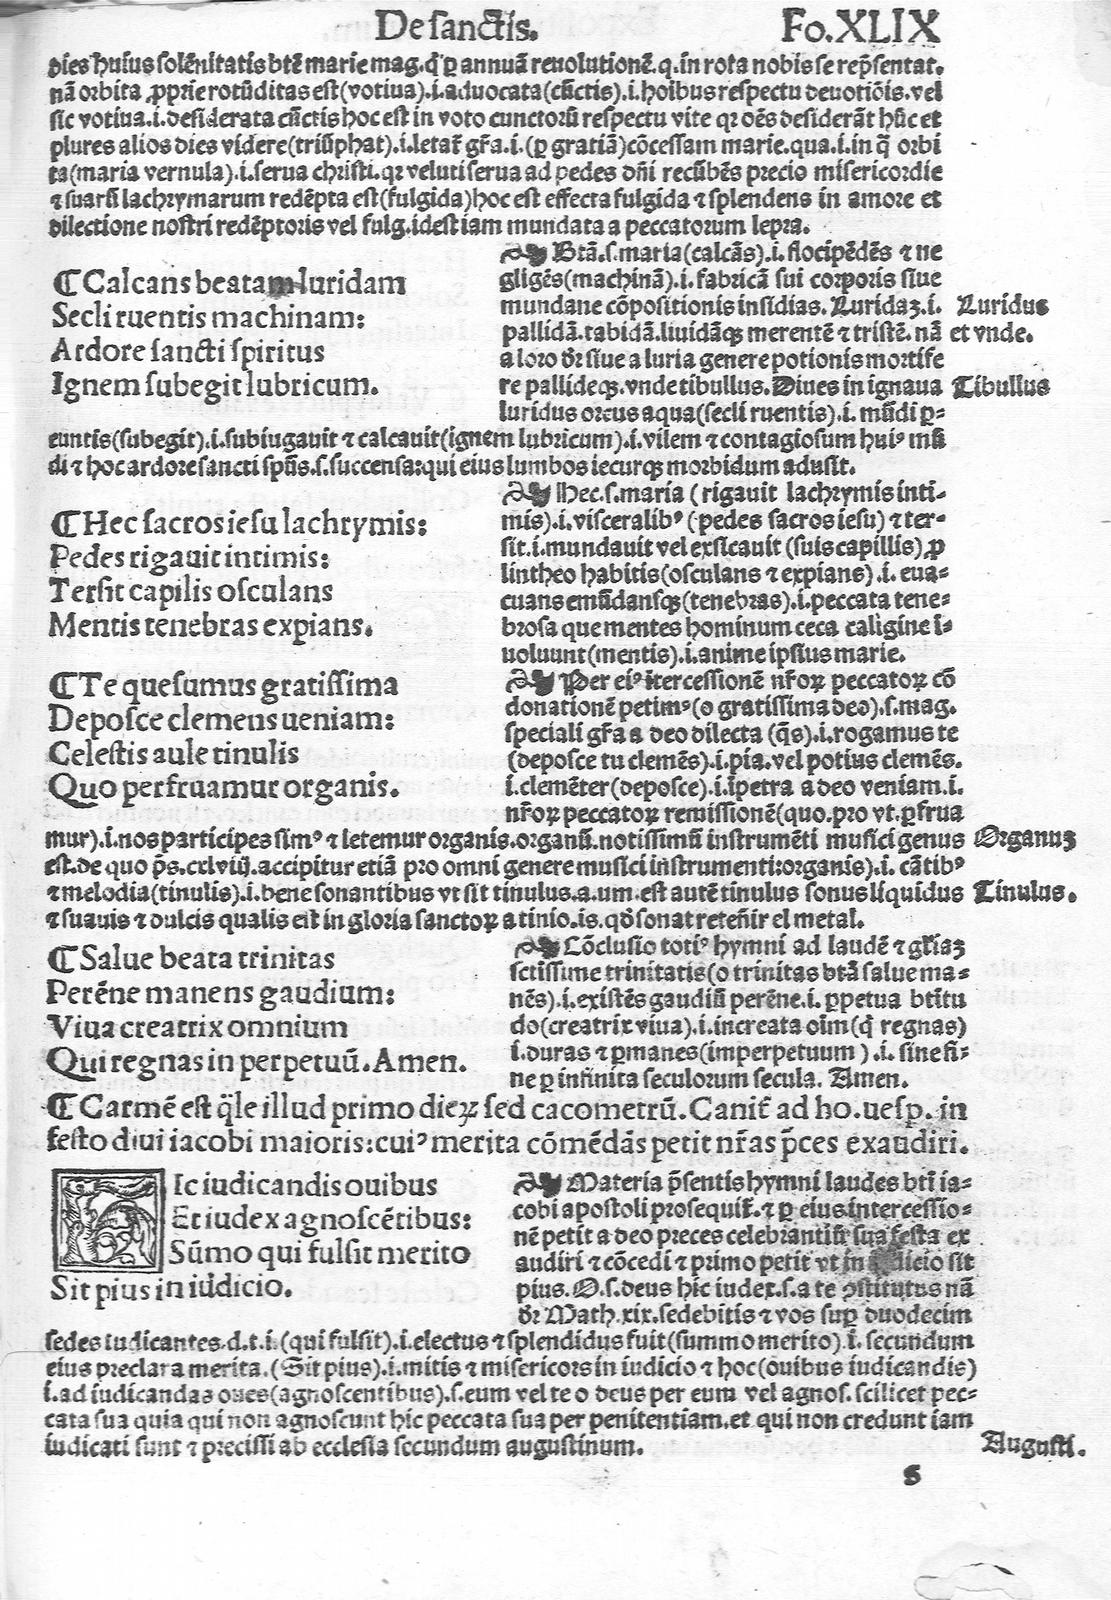 De sanctis.
Fo.XLIX
dies huius solēnitatis btē marie mag. q̄ ꝑ annuā reuolutionē.q.in rota nobis se rep̄sentat.
nā orbita ꝓprie rotūditas est(votiua).i.aduocata(cūctis).i.hoibus respectu deuotiōis.vel
sic votiua.i.desiderata cūctis hoc est in voto cunctorū respectu vite qr oēs desiderāt hūc et
plures alios dies videre(triūphat).i.letat̄ gr̄a.i.(ꝑ gratiā)cōcessam marie.qua.i.in q̄ orbi
ta(maria vernula).i.serua christi.qr veluti serua ad pedes dn̄i recūbēs precio misericordie
⁊ suarū lachrymarum redēpta est(fulgida)hoc est effecta fulgida ⁊ splendens in amore et
dilectione nostri redēptoris vel fulg.idest iam mundata a peccatorum lepra.
¶ Calcans beatam luridam
Secli ruentis machinam:
Ardore sancti spiritus
Ignem subegit lubricum.
Btā.s.maria(calcās).i.flocipēdēs ⁊ ne
gligēs(machinā).i.fabricā sui corporis siue
mundane cōpositionis insidias. Luridaꝫ.i.
pallidā.tabidā.liuidāqꝫ merentē ⁊ tristē. nā
a loro dr̄ siue a luria genere potionis mortife
re pallideqꝫ.vnde tibullus. Diues in ignaua
luridus orcus aqua(secli ruentis).i. mūdi ꝑ-
Luridus
et vnde.
Tibullus
euntis(subegit).i.subiugauit ⁊ calcauit(ignem lubricum).i.vilem ⁊ contagiosum huiꝰ mū
di ⁊ hoc ardore sancti spūs.s.succensa:qui eius lumbos iecurqꝫ morbidum adusit.
¶ Hec sacros iesu lachrymis:
Pedes rigauit intimis:
Tersit capilis osculans
Mentis tenebras expians.
Hec.s.maria ( rigauit lachrymis inti-
mis).i.visceralibꝰ (pedes sacros iesu) ⁊ ter-
sit.i.mundauit vel exsicauit (suis capillis) ꝓ
lintheo habitis(osculans ⁊ expians) .i. eua-
cuans emūdansqꝫ(tenebras).i.peccata tene-
brosa que mentes hominum ceca caligine i-
uoluunt(mentis).i.anime ipsius marie.
¶ Te quesumus gratissima
Deposce clemens ueniam:
Celestis aule tinulis
Quo perfruamur organis.
Per eiꝰ ītercessionē nr̄oꝝ peccatoꝝ cō
donationē petimꝰ(o gratissima deo).s.mag.
speciali gr̄a a deo dilecta (q̄s).i.rogamus te
(deposce tu clemēs).i.pia.vel potius clemēs.
i.clemēter(deposce).i.īpetra a deo veniam.i.
nr̄oꝝ peccatoꝝ remissionē(quo.pro vt.ꝑfrua
mur).i.nos participes simꝰ ⁊ letemur organis.organū.notissimū instrumēti musici genus
est.de quo p̄s.cxlviij.accipitur etiā pro omni genere musici instrumenti:organis).i. cātibꝰ
⁊ melodia(tinulis).i.bene sonantibus vt sit tinulus.a.um.est autē tinulus sonus liquidus
⁊ suauis ⁊ dulcis qualis est in gloria sanctoꝝ a tinio.is.qd̄ sonat reteñir el metal.
Organuꝫ
Tinulus.
¶ Salue beata trinitas
Perēne manens gaudium:
Viua creatrix omnium
Qui regnas in perpetuū. Amen.
Cōclusio totiꝰ hymni ad laudē ⁊ gl̄iaꝫ
sctissime trinitatis(o trinitas btā salue ma-
nēs).i.existēs gaudiū perēne.i. ꝑpetua btītu
do(creatrix viua).i.increata oīm(q̄ regnas)
i.duras ⁊ ꝑmanes(imperpetuum ).i. sine fi-
ne ꝑ infinita seculorum secula. Amen.
¶ Carmē est q̄le illud primo dieꝝ sed cacometrū. Canit̄ ad ho.uesp. in
festo diui iacobi maioris:cuiꝰ merita cōmēdās petit nr̄as p̄ces exaudiri.
Ic iudicandis ouibus
Et iudex agnoscētibus:
Sūmo qui fulsit merito
Sit pius in iudicio.
Materia p̄sentis hymni laudes btī ia-
cobi apostoli prosequit̄. ⁊ ꝑ eius intercessio-
nē petit a deo preces celebrantiū sua festa ex
audiri ⁊ cōcedi ⁊ primo petit vt in iudicio sit
pius. O.s.deus hic iudex.s.a te ꝯstitutus nā
dr̄ Math.xix.sedebitis ⁊ vos sup̄ duodecim
sedes iudicantes.d.t.i.(qui fulsit).i.electus ⁊ splendidus fuit(summo merito).i. secundum
eius preclara merita.(Sit pius).i.mitis ⁊ misericors in iudicio ⁊ hoc(ouibus iudicandis)
i.ad iudicandas oues(agnoscentibus).s.eum vel te o deus per eum vel agnos. scilicet pec-
cata sua quia qui non agnoscunt hic peccata sua per penitentiam.et qui non credunt iam
iudicati sunt ⁊ precissi ab ecclesia secundum augustinum.
Augusti.
s